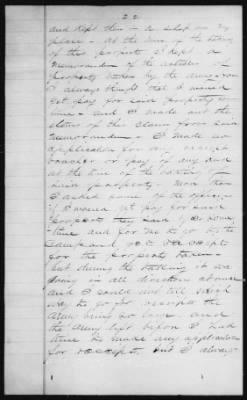 22
and kept them in a shop on my
place - At the time of the taking
of this property I kept a
memorandum of the articles of
property taken by the army
I always thought that I would
get pay for said property
time - and I made out the
of the claim from said
memorandum I made no
application for any receipt
voucher or pay of any kind
at the time of the taking of
said property - more than
I asked some of the officers
if I would get pay for said
property they said I
time and for me to go to the
camp and get receipts
for the property taken -
but during the taking it was
going in all directions
and I could not tell which
way to go for receipts the
army being so large and
the army left before I had
time to make any application
for receipt, but I always